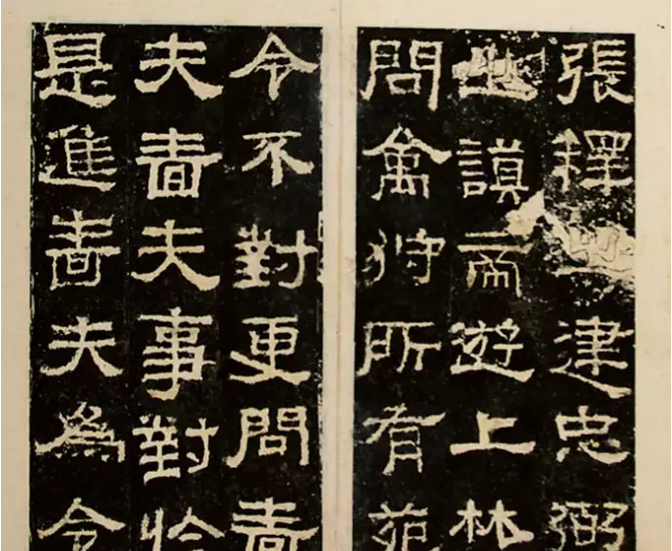 張釋建忠弼
之謨帝遊上林
問禽狩所有苑
令不對更問嗇
夫嗇夫事對於
是進嗇夫為令